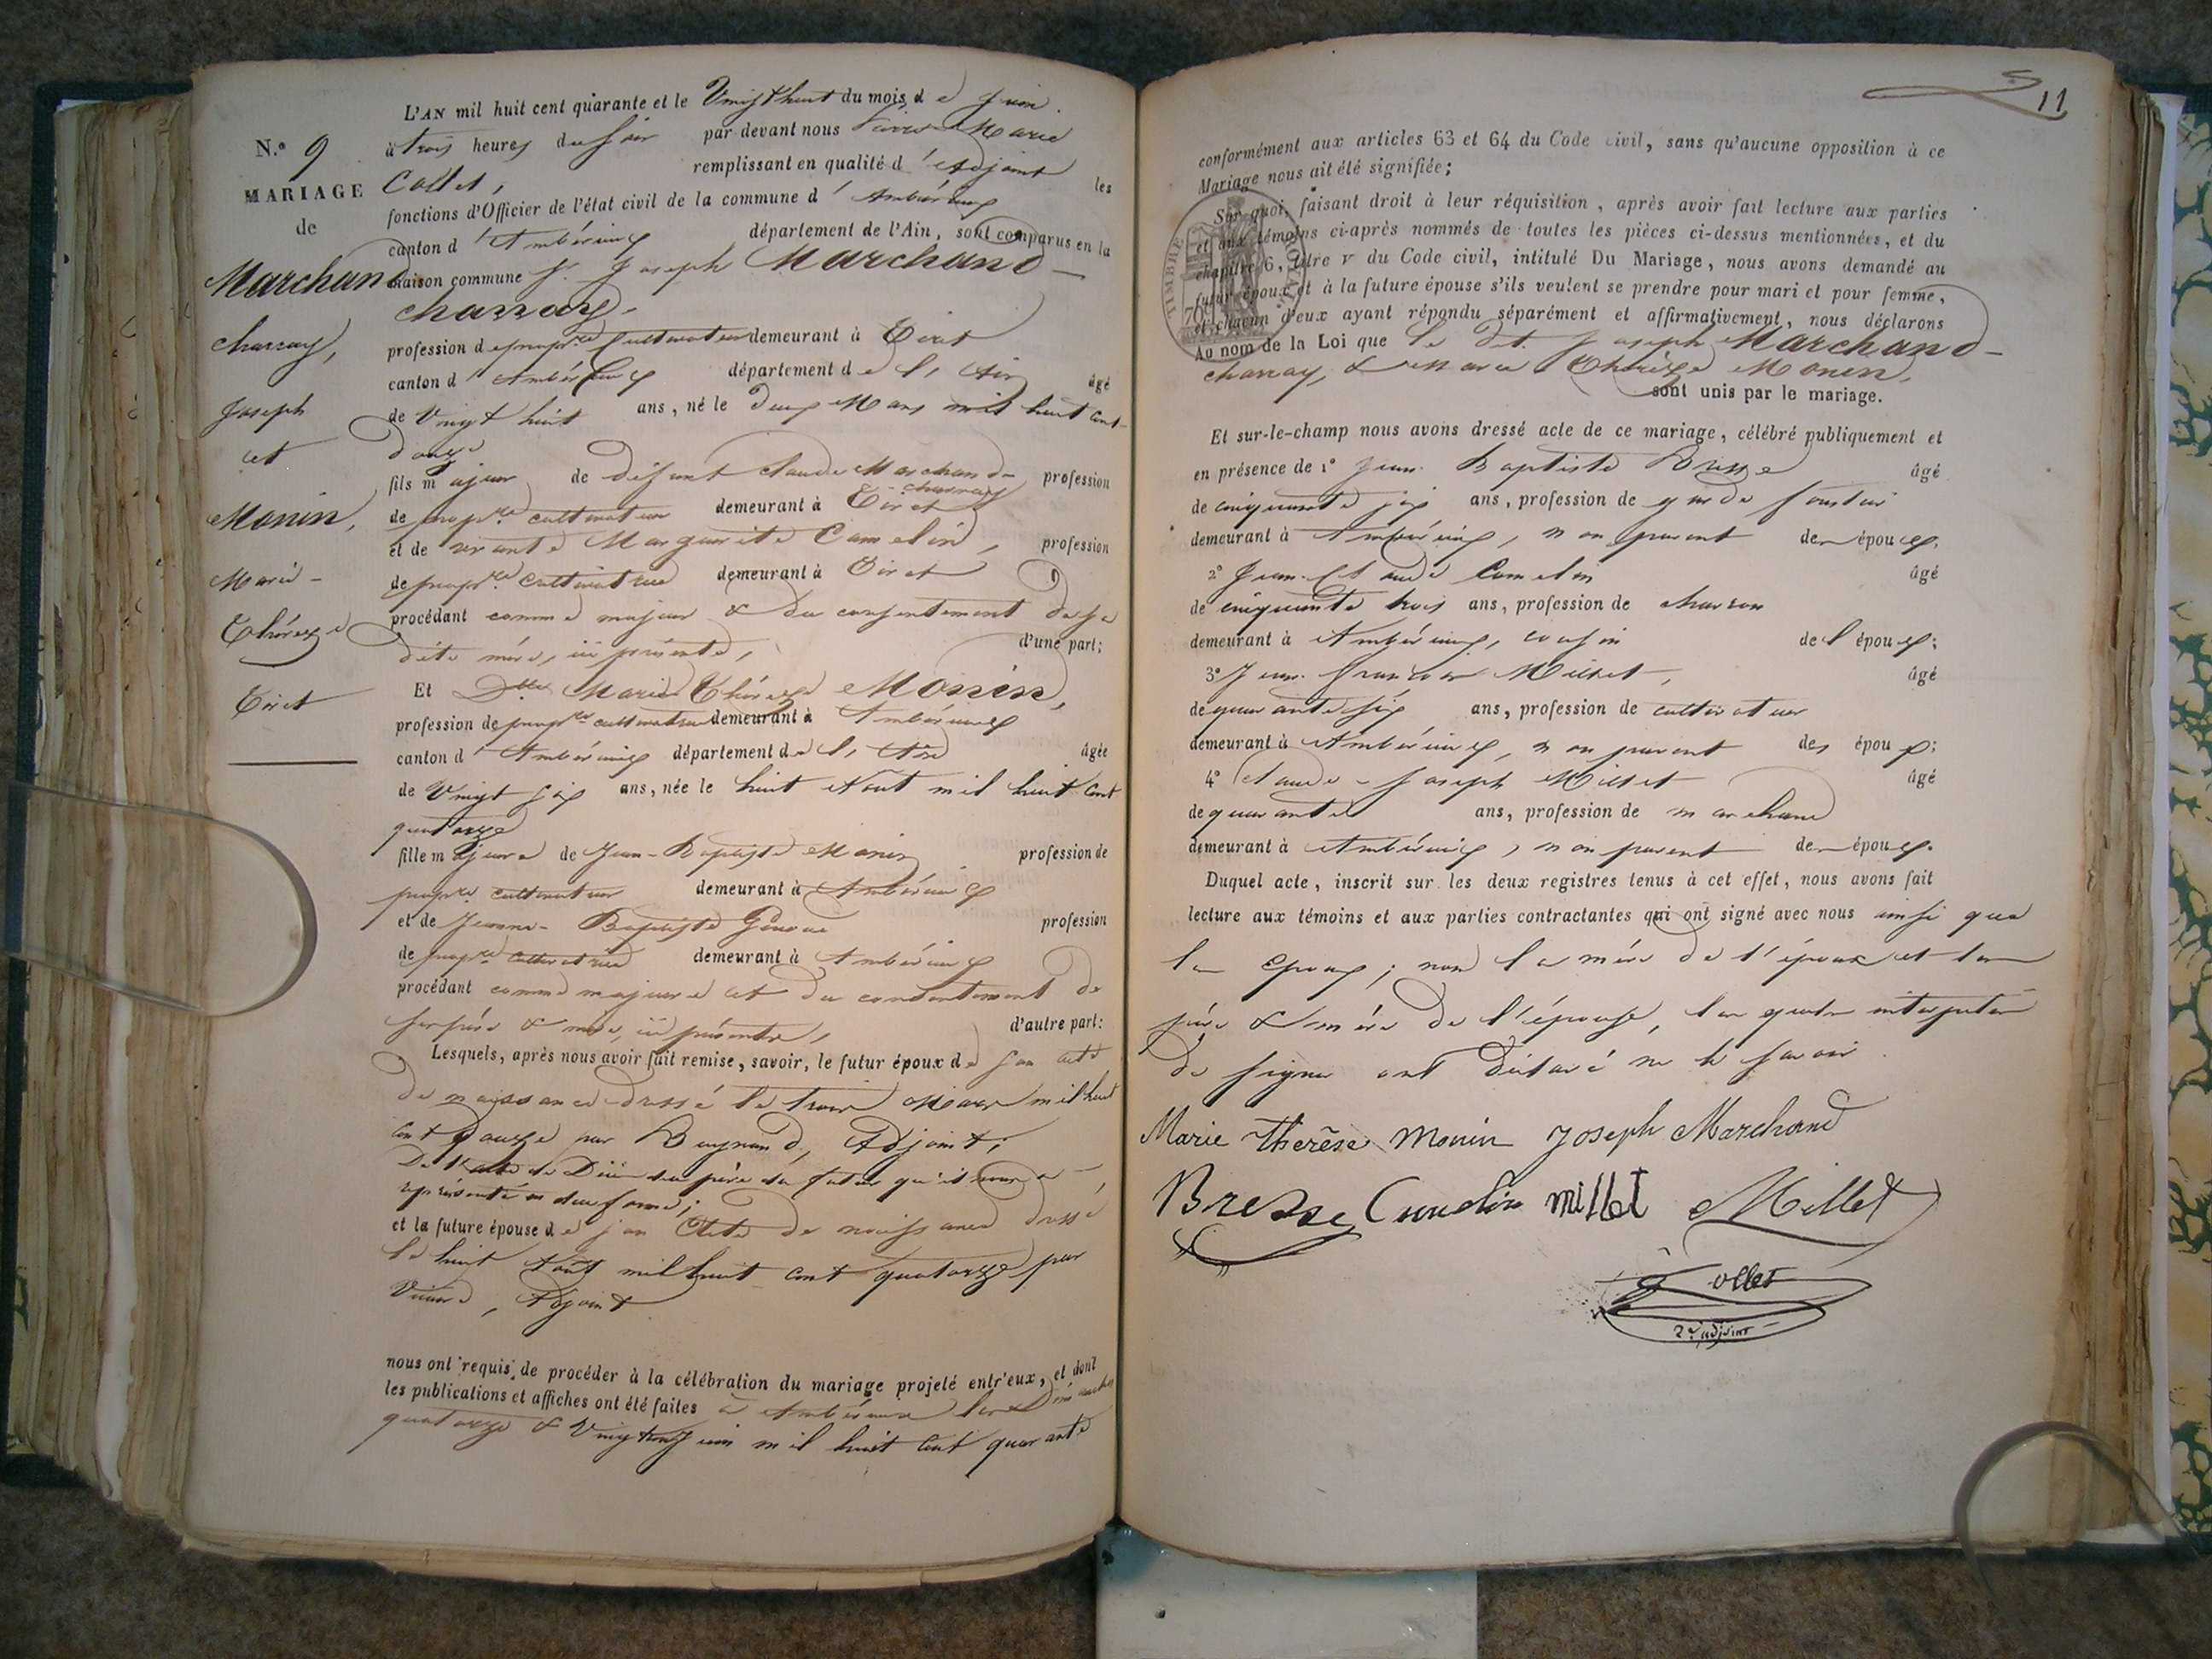 N.° 9
MARIAGE
de
Marchand
charray,
Joseph
et
Monin,
Marie-
Thérèze
Tiret
L'AN mil huit cent quarante et le Vingt huit du mois de Juin
à trois heures du soir par-devant nous Marie
Collet, remplissant en qualité d'Adjoint les
fonctions d'Officier de l'état civil de la commune d'Ambérieux
canton d'Ambérieux département de l'Ain, sont comparus en la
maison commune Sr. Joseph Marchand-
charray,
profession de propre. cultivateur demeurant à Tiret
canton d'Ambérieux département de l'Ain âgé
de Vingt huit ans, né le deux Mars mil huit cent
douze
fils majeur de défunt Claude Marchand- profession
charray
de propre. cultivateur demeurant à Tiret
et de vivante Marguerite Camelin, profession
de propre. cultivatrice demeurant à Tiret
procédant comme majeur & du consentement de sa
dite mère, ici présente, d'une part;
Et Dlle Marie Thérèze Monin,
profession de propre. cultivatrice demeurant à Ambérieux
canton d'Ambérieux département de l'Ain âgée
de Vingt six ans, née le huit Aout mil huit cent
quatorze
fille majeure de Jean-Baptiste Monin profession de
propre. cultivateur demeurant à Ambérieux
et de Jeanne-Baptiste profession
de propre. cultivatrice demeurant à Ambérieux
procédant comme majeure et du consentement de
ses père & mère, ici présents, d'autre part:
Lesquels, après nous avoir fait remise, savoir, le futur époux de son acte
de naissance dressé le trois Mars mil huit
cent douze par Adjoint;
De l'acte de Décès du père du futur qu'il nous a
représenté en due forme;
et la future épouse de son Acte de naissance dressé
le huit Aout mil huit cent quatorze par
Adjoint
nous ont requis de procéder à la célébration du mariage projeté entr'eux, et dont
les publications et affiches ont été faites à Ambérieux les Dimanches
quatorze & Vingt un Juin mil huit cent quarante
11
conformément aux articles 63 et 64 du Code civil, sans qu'aucune opposition à ce
Mariage nous ait été signifiée;
Sur quoi, faisant droit à leur réquisition, après avoir fait lecture aux parties
et aux témoins ci-après nommés de toutes les pièces ci-dessus mentionnées, et du
chapitre 6, titre v du Code civil, intitulé Du Mariage, nous avons demandé au
futur époux et à la future épouse s'ils veulent se prendre pour mari et pour femme,
et chacun d'eux ayant répondu séparément et affirmativement, nous déclarons
Au nom de la Loi que le dit Joseph Marchand-
charray, & Marie Thérèze Monin,
sont unis par le mariage.
Et sur-le-champ nous avons dressé acte de ce mariage, célébré publiquement et
en présence de 1° Jean-Baptiste Bresse âgé
de cinquante six ans, profession de garde forestier
demeurant à Ambérieux, non parent des époux;
2° Jean-Claude Camelin âgé
de cinquante trois ans, profession de charron
demeurant à Ambérieux, cousin de l'époux;
3° Jean-François Millet, âgé
de quarante six ans, profession de cultivateur
demeurant à Ambérieux, non parent des époux;
4° Claude-Joseph Millet âgé
de quarante ans, profession de marchand
demeurant à Ambérieux, non parent des époux.
Duquel acte, inscrit sur les deux registres tenus à cet effet, nous avons fait
lecture aux témoins et aux parties contractantes qui ont signé avec nous ainsi que
les époux; non la mère de l'époux et les
père & mère de l'épouse, lesquels interpelés
de signer ont déclaré ne le savoir.
Marie Therèse Monin Joseph Marchand
Bresse Camelin Millet Millet
Collet
2e adjoint
TIMBRE ROYAL
70